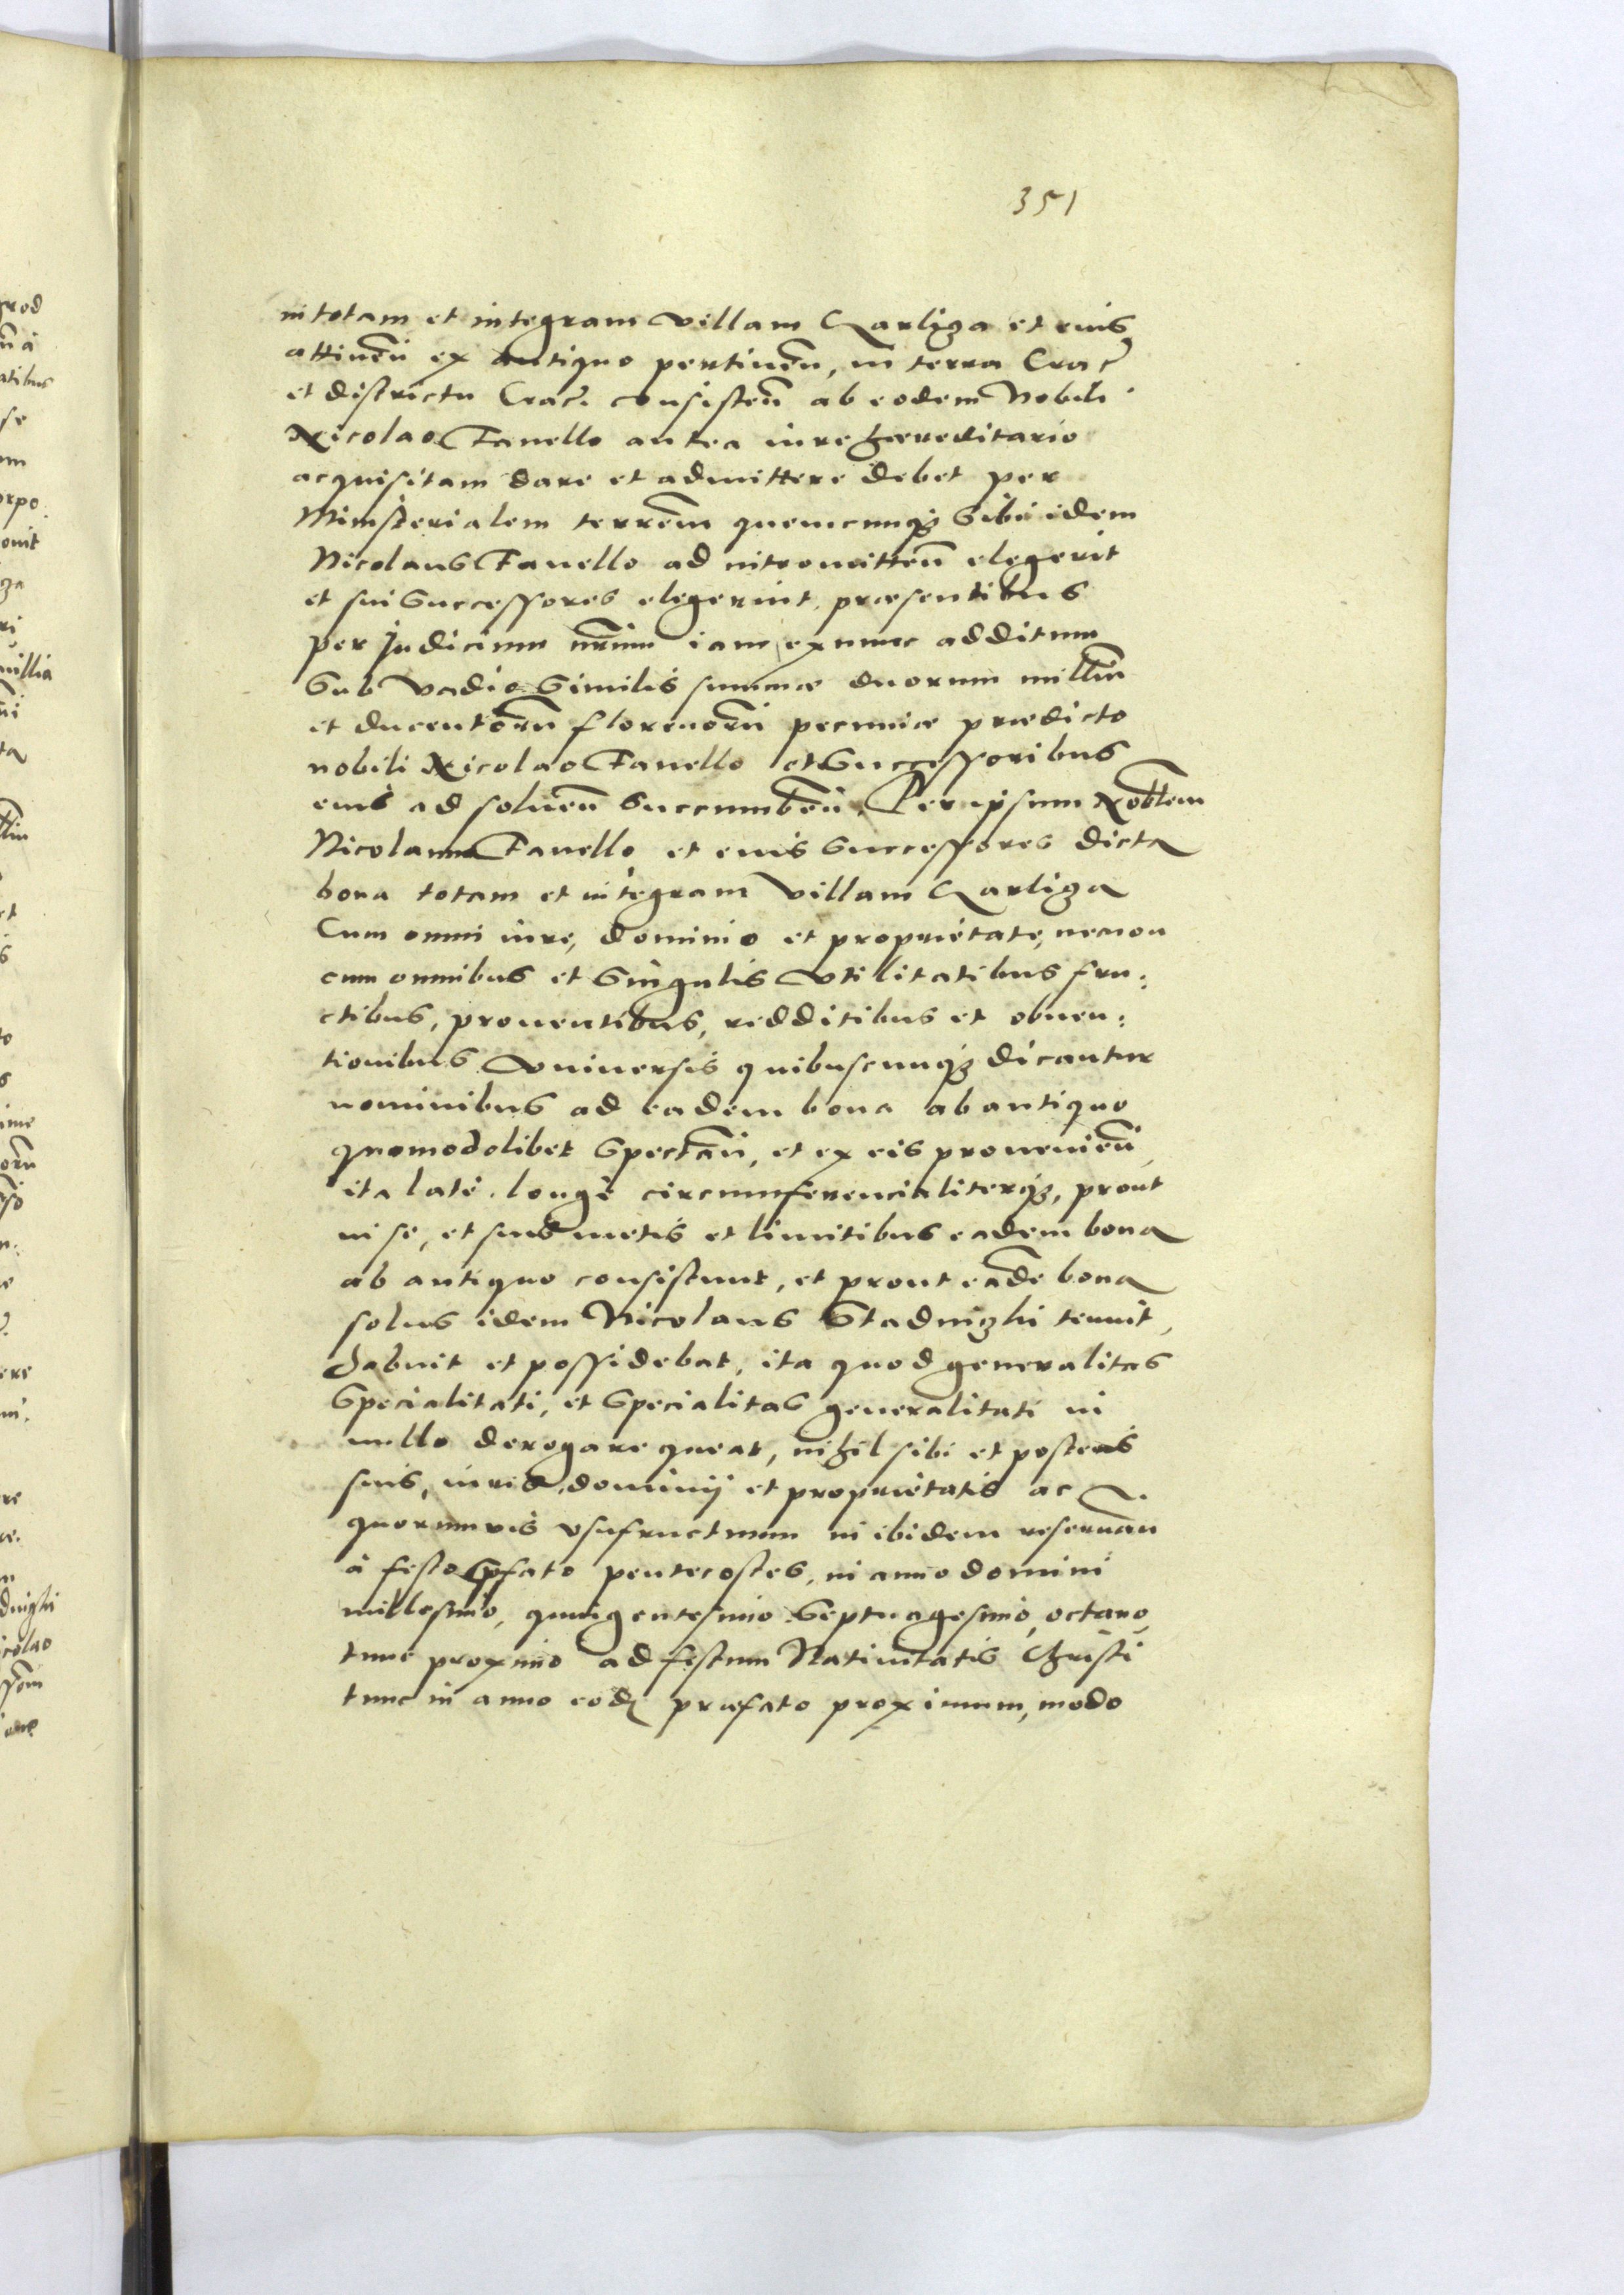 351
in totam et integram villam Karliga et eius
attineñ ex antiquo pertineñ, in terra Crac̃
et districtu Crac̃. consisteñ ab eodem Nobili
Nicolao Fanello antea iure hæreditario
acquisitam dare et admittere debet per
Ministerialem terrẽm quemcunqȝ sibi idem
Nicolaus Fanello ad intromitteñ elegerit
et sui successores elegerint, præsentibus
per judicium nr̃um iam exnunc additum
sub vadio similis summæ duorum milliũ
et ducentorũ florenorũ pecuniæ prædicto
nobili Nicolao Fanello et Successoribus
eius ad solueñ succumbeñ, Per ipsum Nobl̃em
Nicolaum Fanello, et euis successores dicta
bona totam et integram villam Karliga
Cum omni iure, dominio et proprietate, necnon
cum omnibus et singulis vtilitatibus fru:
ctibus, prouentibus, redditibus et obuen:
tionibus vniuersis quibuscunqȝ dicantur
nominibus ad eadem bona ab antiquo
quomodolibet spectañ, et ex eis prouenieñ,
ita latè. longè circumferencialiterqȝ, prout
in se, et suis metis et limitibus eadem bona
ab antiquo consistunt, et prout eadẽ bona
solus idem Nicolaus Stadnizki tenuit,
habuit et possidebat, ita quod generalitas
specialitati, et specialitas generalitati in
nullo derogare queat, nihil sibi et posteris
suis, iuris, dominij et proprietatis ac
quorumvis vsufructuum in ibidem reseruañ
à festo p̃fato pentecostes, in anno domini
millesimo, quingentesimo septuagesimò, octavo,
tunc proximo ad festum Natiuitatis Christi
tunc in anno eodẽ præfato proximum, modo